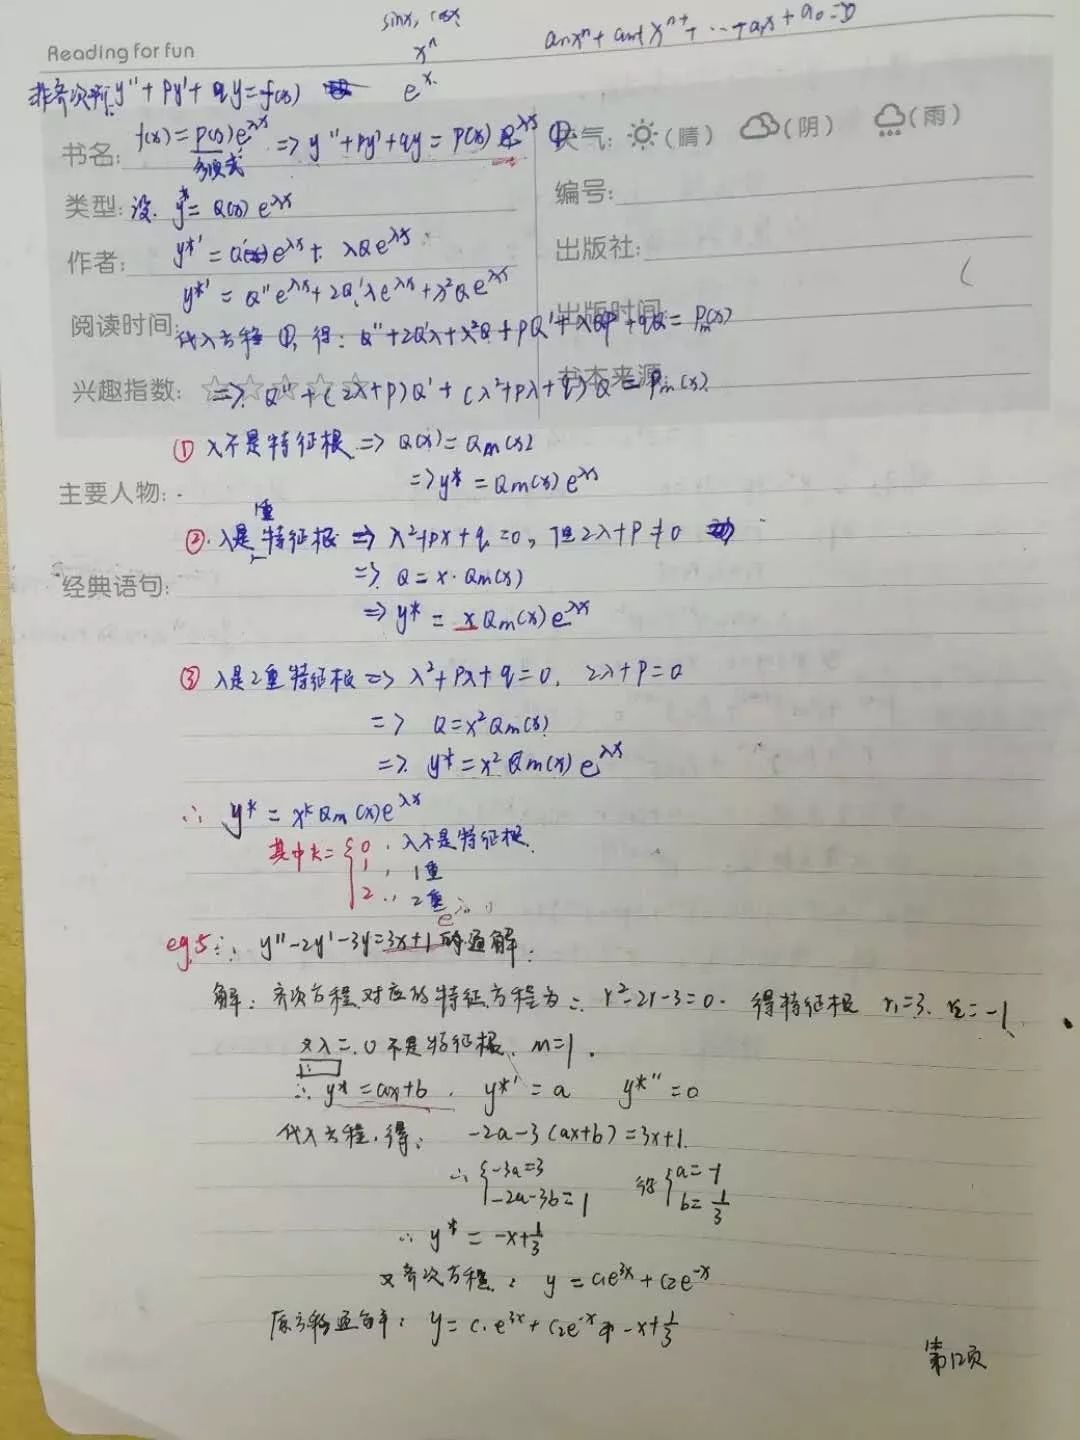 sinx, cosx
Reading for fun
xⁿ
aₙxⁿ+aₙ₋₁xⁿ⁻¹+…+a₁x+a₀=0
非齐次所: y''+py'+qy=f(x)
eˣ
书名: f(x)=P(x)e^λx => y''+py'+qy=P(x)e^λx ①
多项式
天气: (晴) (阴) (雨)
类型: 设. y*=Q(x)e^λx
编号:
作者: y*'=Q'e^λx+λQe^λx
出版社:
y*'=Q''e^λx+2Q'λe^λx+λ²Qe^λx
阅读时间:
出版时间
代入方程①,得: Q''+2Q'λ+λ²Q+pQ'+λQp+qQ=Pm(x)
兴趣指数: ☆☆☆☆☆
书本来源
=> Q''+(2λ+p)Q'+(λ²+pλ+q)Q=Pm(x)
① λ不是特征根 => Q(x)=Qm(x)
主要人物:
=> y*=Qm(x)e^λx
② λ是1重特征根 => λ²+pλ+q=0, 但2λ+p≠0
经典语句:
=> Q=x·Qm(x)
=> y*=xQm(x)e^λx
③ λ是2重特征根 => λ²+pλ+q=0, 2λ+p=0
=> Q=x²Qm(x)
=> y*=x²Qm(x)e^λx
∴ y*=xᵏQm(x)e^λx
其中k={0, λ不是特征根.
1, 1重
2, 2重
eg.5: y''-2y'-3y=3x+1的通解.
解: 齐次方程对应的特征方程为: r²-2r-3=0. 得特征根 r₁=3, r₂=-1
又λ=0不是特征根, m=1.
∴ y*=ax+b. y*'=a y*''=0
代入方程,得: -2a-3(ax+b)=3x+1.
∴{-3a=3 得{a=-1
-2a-3b=1 b=1/3
∴ y*=-x+1/3
又齐次方程: y=c₁e³ˣ+c₂e⁻ˣ
原方程通解: y=c₁e³ˣ+c₂e⁻ˣ-x+1/3
第12页